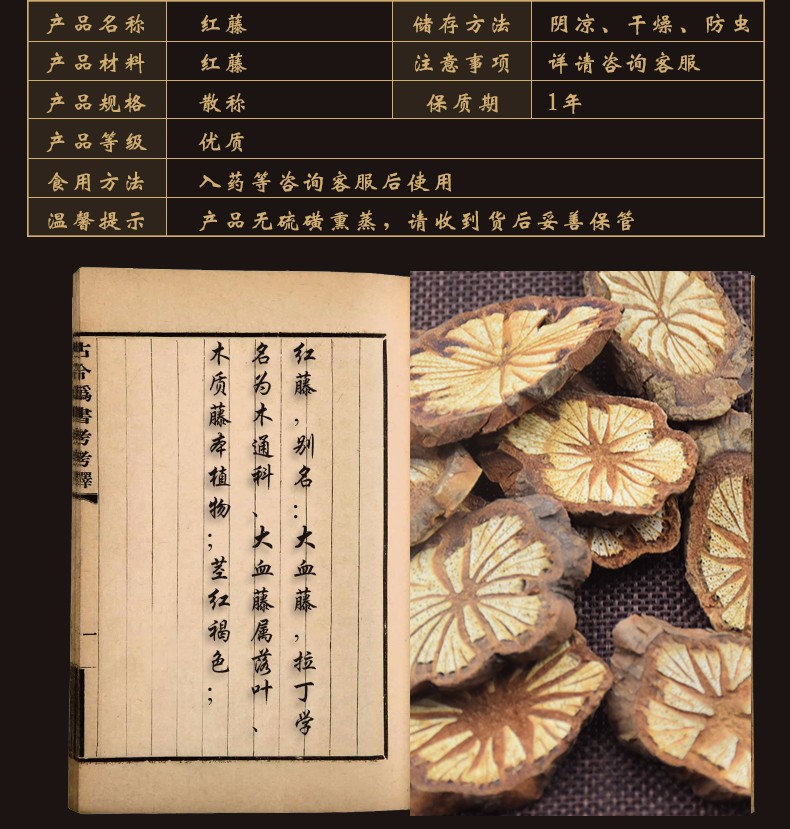 产品名称 红藤 储存方法 阴凉、干燥、防虫
产品材料 红藤 注意事项 详请咨询客服
产品规格 散称 保质期 1年
产品等级 优质
食用方法 入药等咨询客服后使用
温馨提示 产品无硫磺熏蒸，请收到货后妥善保管
红藤，别名：大血藤，拉丁学
名为木通科、大血藤属落叶、
木质藤本植物；茎红褐色；
书考考釋
一